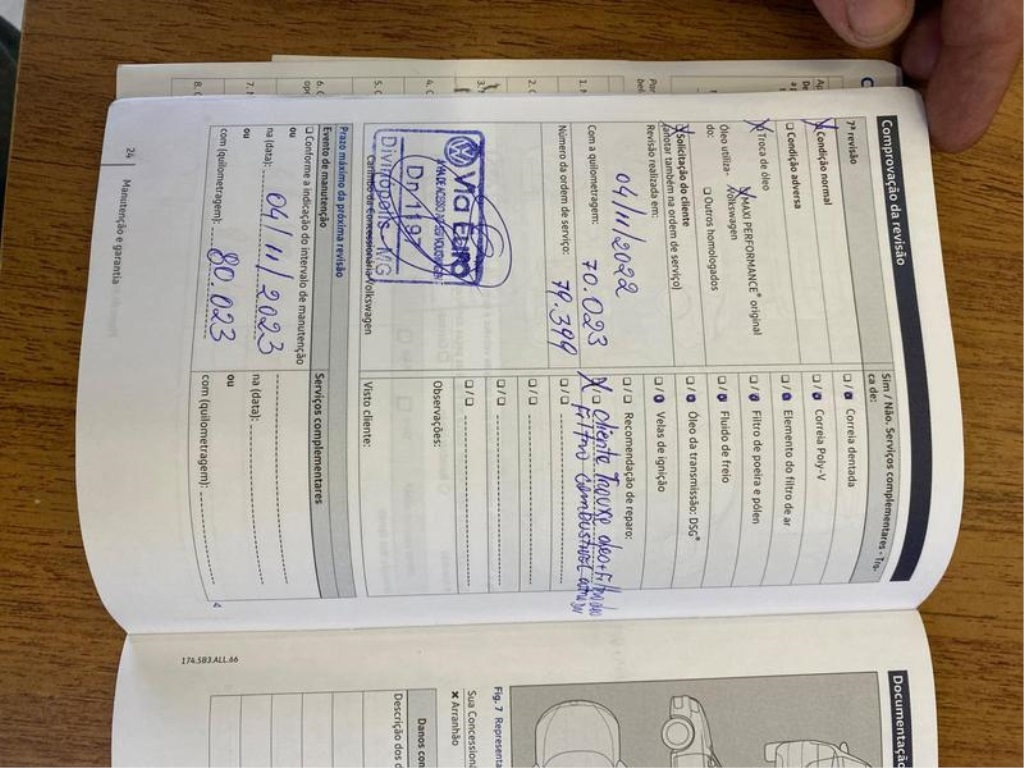 Comprovação da revisão
7ª revisão
X Condição normal
☐ Condição adversa
X Troca de óleo
Óleo utiliza-do:
MAXI PERFORMANCE® original Volkswagen
☐ Outros homologados
X Solicitação do cliente
(anotar também na ordem de serviço)
Revisão realizada em:
04/11/2022
Com a quilometragem: 70.023
Número da ordem de serviço: 79.399
Via Euro
Dn 1197
Divinópolis-MG
Carimbo da Concessionária Volkswagen
Prazo máximo da próxima revisão
Evento de manutenção
☐ Conforme a indicação do intervalo de manutenção
ou
na (data): 04/11/2023
ou
com (quilometragem): 80.023
Sim / Não. Serviços complementares - Tro-
ca de:
☐/☐ Correia dentada
☐/☐ Correia Poly-V
☐/☐ Elemento do filtro de ar
☐/☐ Filtro de poeira e pólen
☐/☐ Fluido de freio
☐/☐ Óleo da transmissão: DSG®
☐/☐ Velas de ignição
☐/☐ Recomendação de reparo:
X Cliente Trouxe óleo+Filtro óleo
☐/☐ Filtro combustível
☐/☐
☐/☐
☐/☐
Observações:
Visto cliente:
Serviços complementares
na (data):
ou
com (quilometragem):
24
Manutenção e garantia
174.5B3.ALL.66
Documentação
Fig. 7 Representa
Sua Concession
✖ Arranhão
Danos con
Descrição dos d